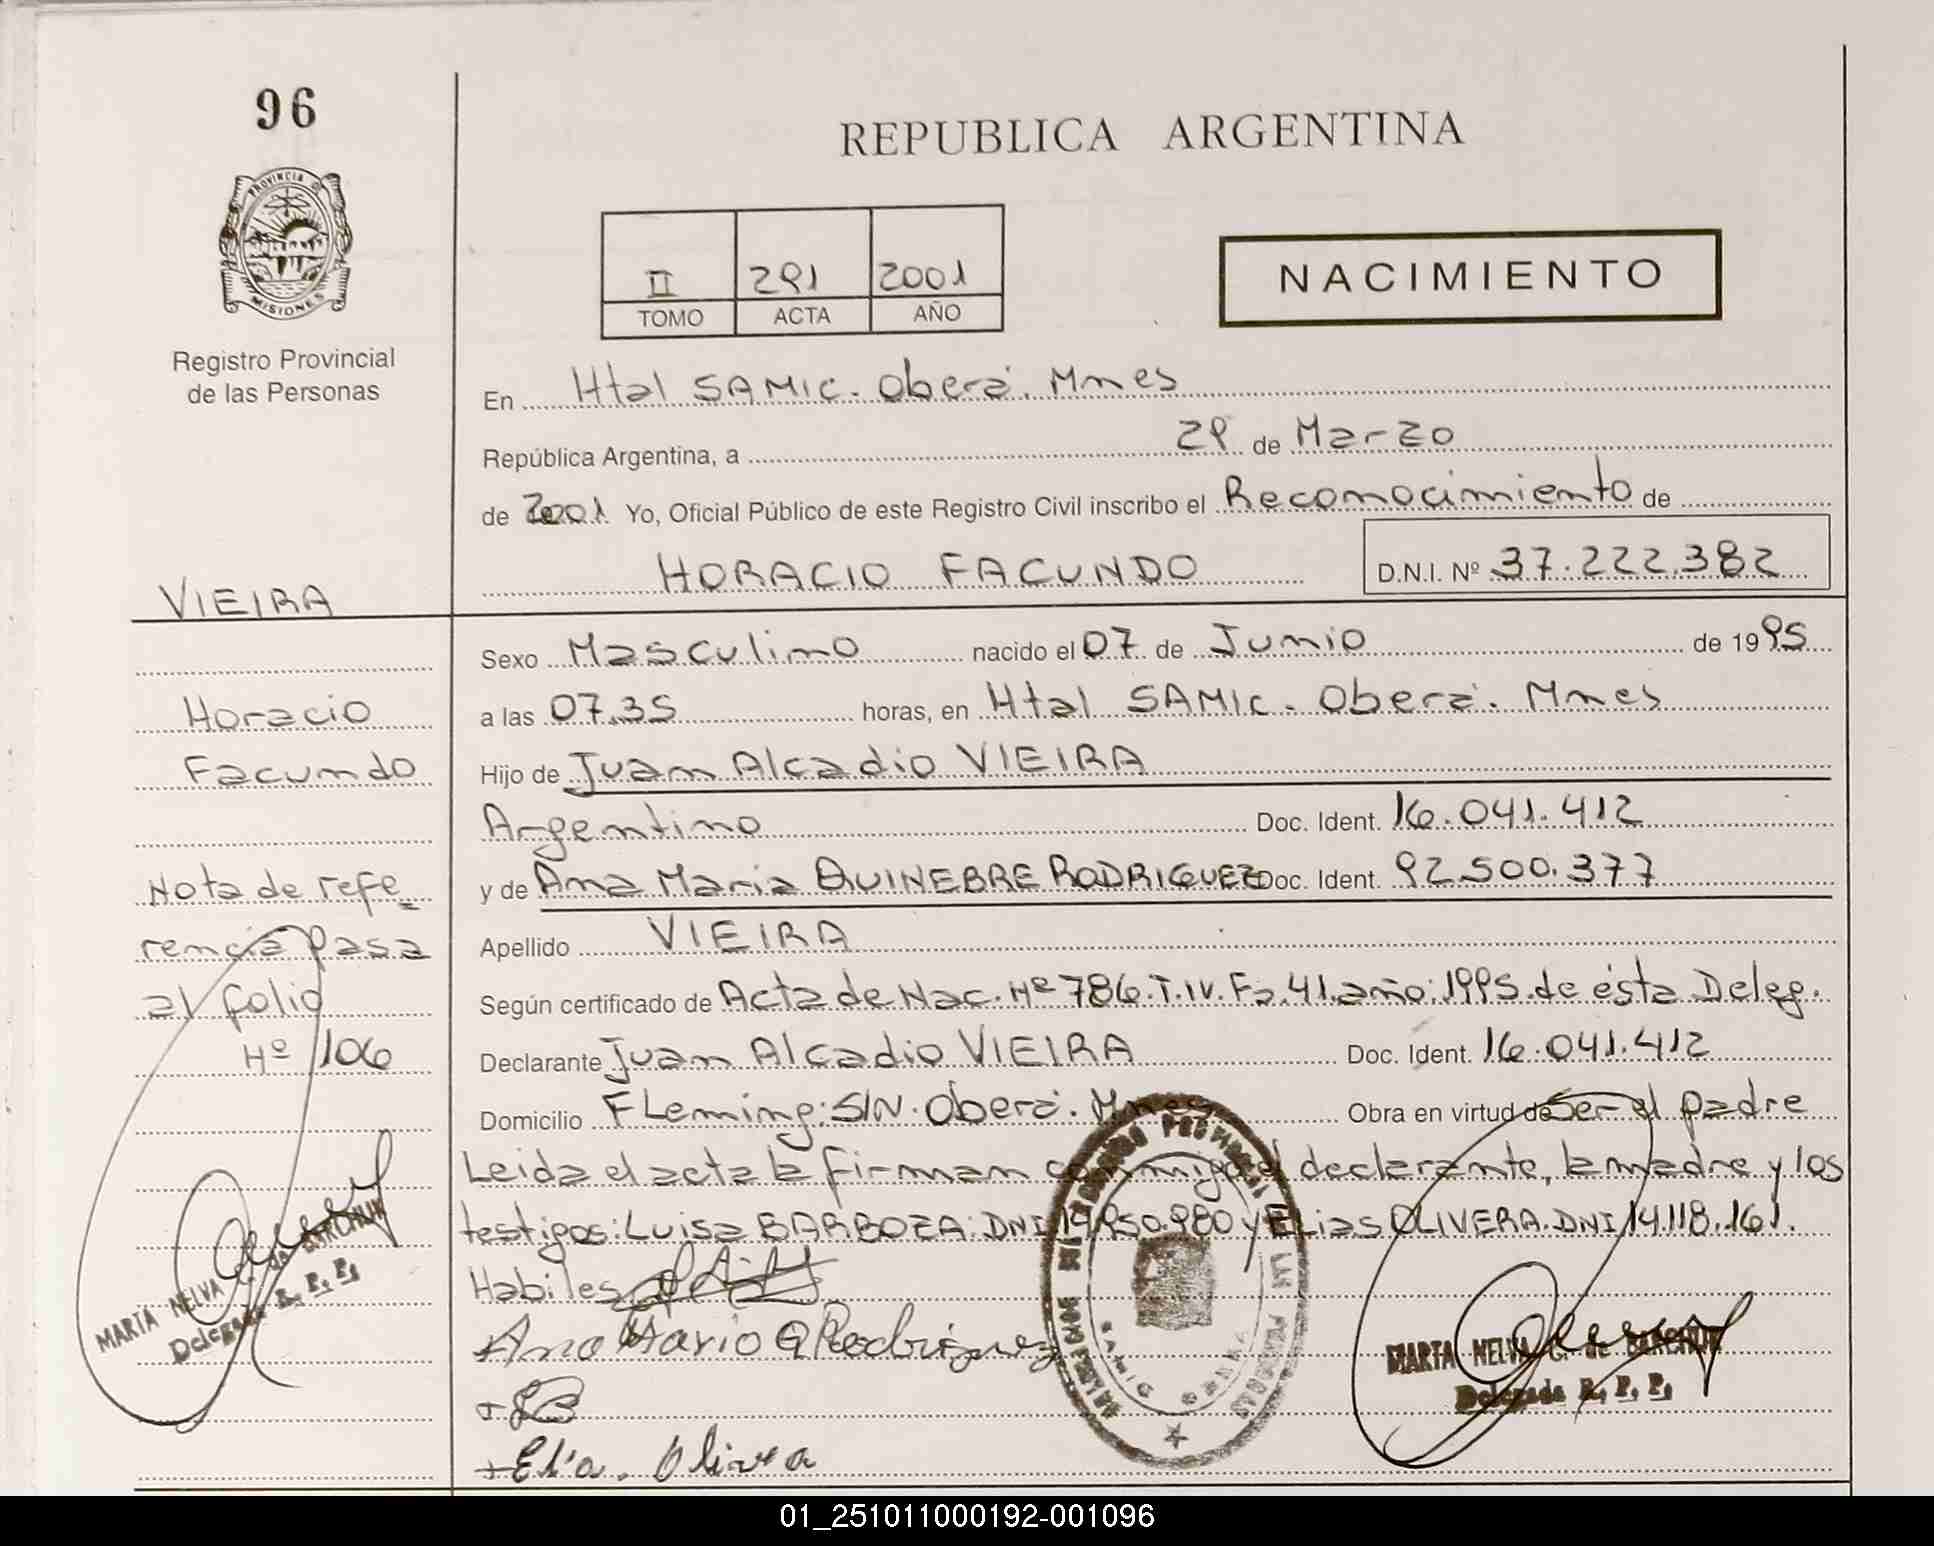 96
REPUBLICA ARGENTINA
PROVINCIA D
MISIONES
Registro Provincial
de las Personas
II 291 2001
TOMO ACTA AÑO
NACIMIENTO
En Htal SAMIC. Oberá. Mnes
República Argentina, a 29 de Marzo
de 2001 Yo, Oficial Público de este Registro Civil inscribo el Reconocimiento de
HORACIO FACUNDO D.N.I. Nº 37.222.382
VIEIRA
Horacio
Facundo
Nota de refe
rencia pasa
al folio
Nº 106
MARTA NELVA G. de BARCHUK
Delegada R. P. P.
Sexo Masculino nacido el 07 de Junio de 1995
a las 07.35 horas, en Htal SAMIC. Oberá. Mnes
Hijo de Juan Alcadio VIEIRA
Argentino Doc. Ident. 16.041.412
y de Ana Maria QUINEBRE RODRIGUEZ Doc. Ident. 92.500.377
Apellido VIEIRA
Según certificado de Acta de Nac. Nº 786. T. IV. Fo. 41. año: 1995. de ésta Deleg.
Declarante Juan Alcadio VIEIRA Doc. Ident. 16.041.412
Domicilio FLeming: S/N. Oberá. Mnes Obra en virtud de Ser el padre
Leida el acta la firman conmigo el declarante, la madre y los
testigos: Luisa BARBOZA. DNI 14.950.980 y Elias OLIVERA. DNI 14.118.161.
Habiles
Ana Maria Q Rodriguez
MARTA NELVA G. de BARCHUK
Delegada R. P. P.
01_251011000192-001096